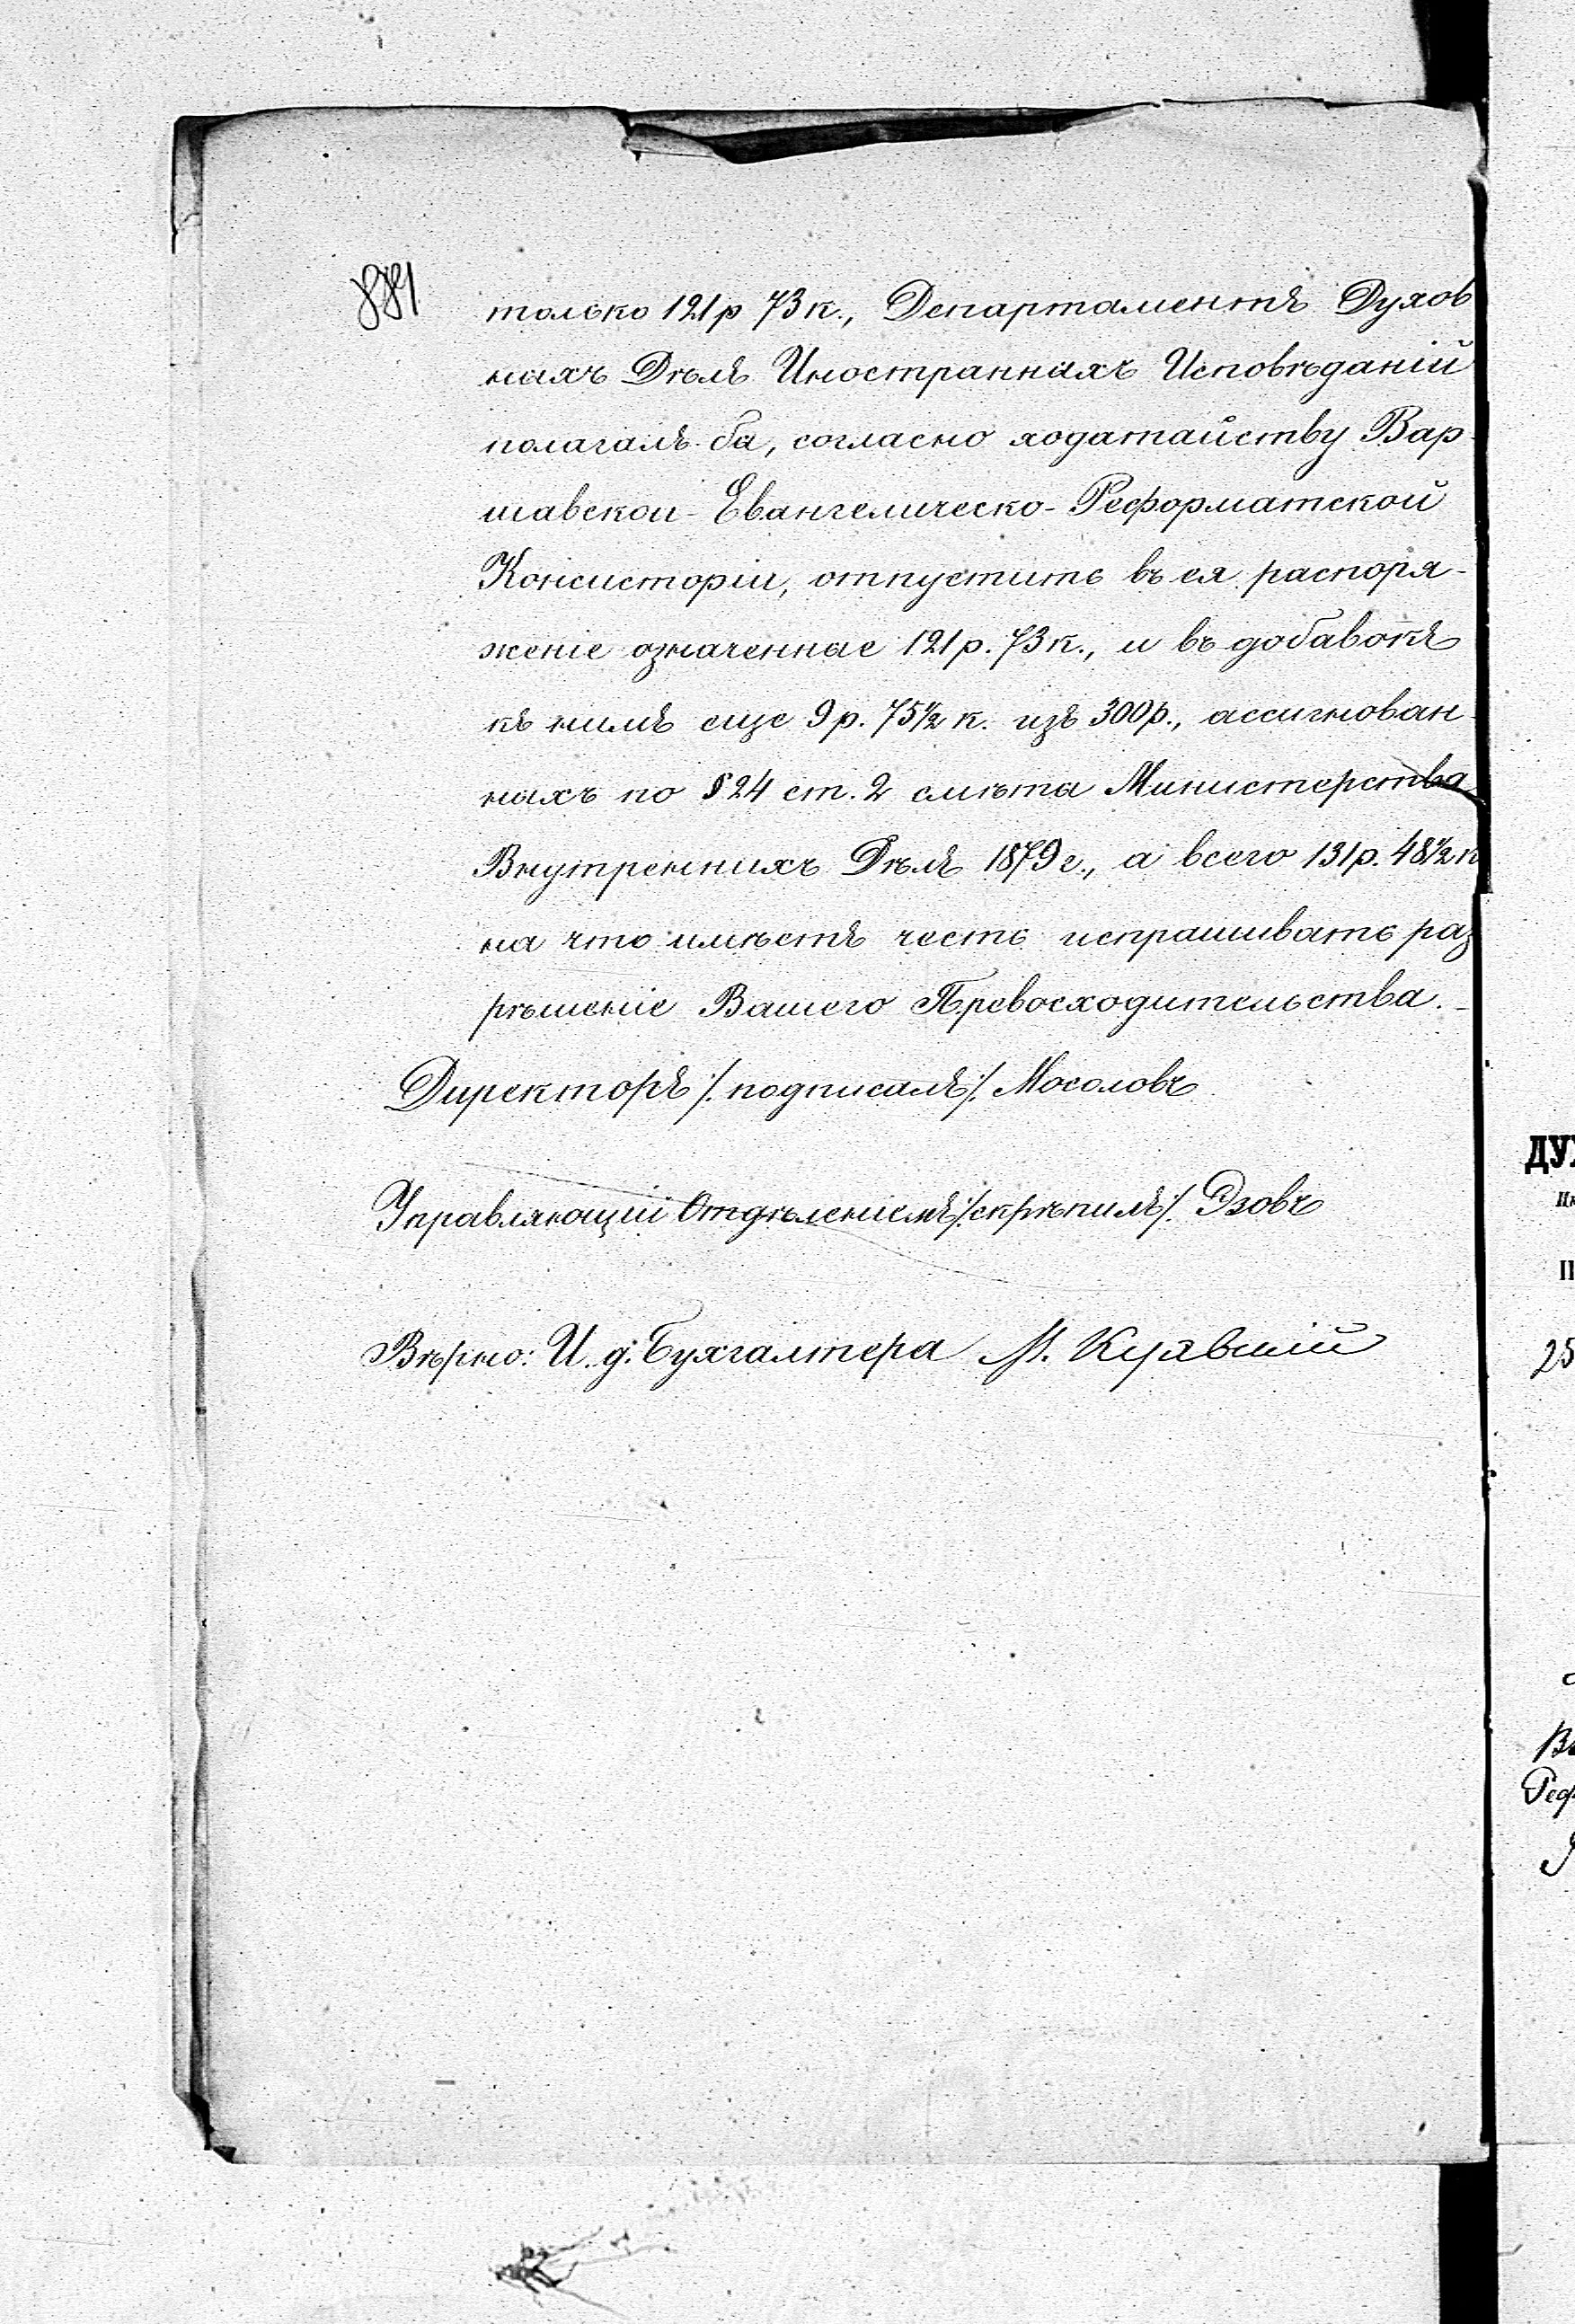 только 121 р 73 к., Департаментъ Духов
ныхъ Дѣлъ Иностранныхъ Исповѣданій
полагалъ бы, согласно ходатайству Вар-
шавской-Евангелическо-Реформатской
Консисторіи, отпустить въ ея распоря-
женіе означенные 121 р. 73 к., и въ добавокъ
къ нимъ еще 9 р. 75½ к. изъ 300 р., ассигнован-
ныхъ по § 24 ст. 2 смѣты Министерства
Внутреннихъ Дѣлъ 1879 г., а всего 131 р. 48½ к
на что имѣетъ честь испрашивать раз
рѣшеніе Вашего Превосходительства.-
Директоръ /: подписалъ :/ Мосоловъ
Управляющій Отдѣленіемъ /: скрѣпилъ :/ Эзовъ
Вѣрно: И. д. Бухгалтера М.
ДУХ
II
25
Реф